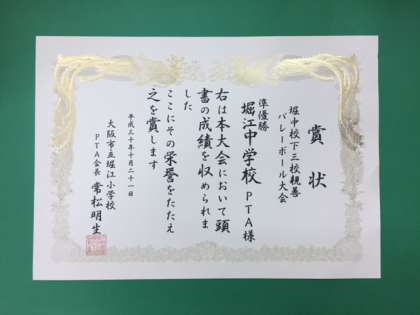 賞状
堀中校下三校親善
バレーボール大会
準優勝
堀江中学校PTA様
右は本大会において頭
書の成績を収められま
した
ここにその栄誉をたたえ
之を賞します
平成三十年十月二十一日
大阪市立堀江小学校
PTA会長 常松明生